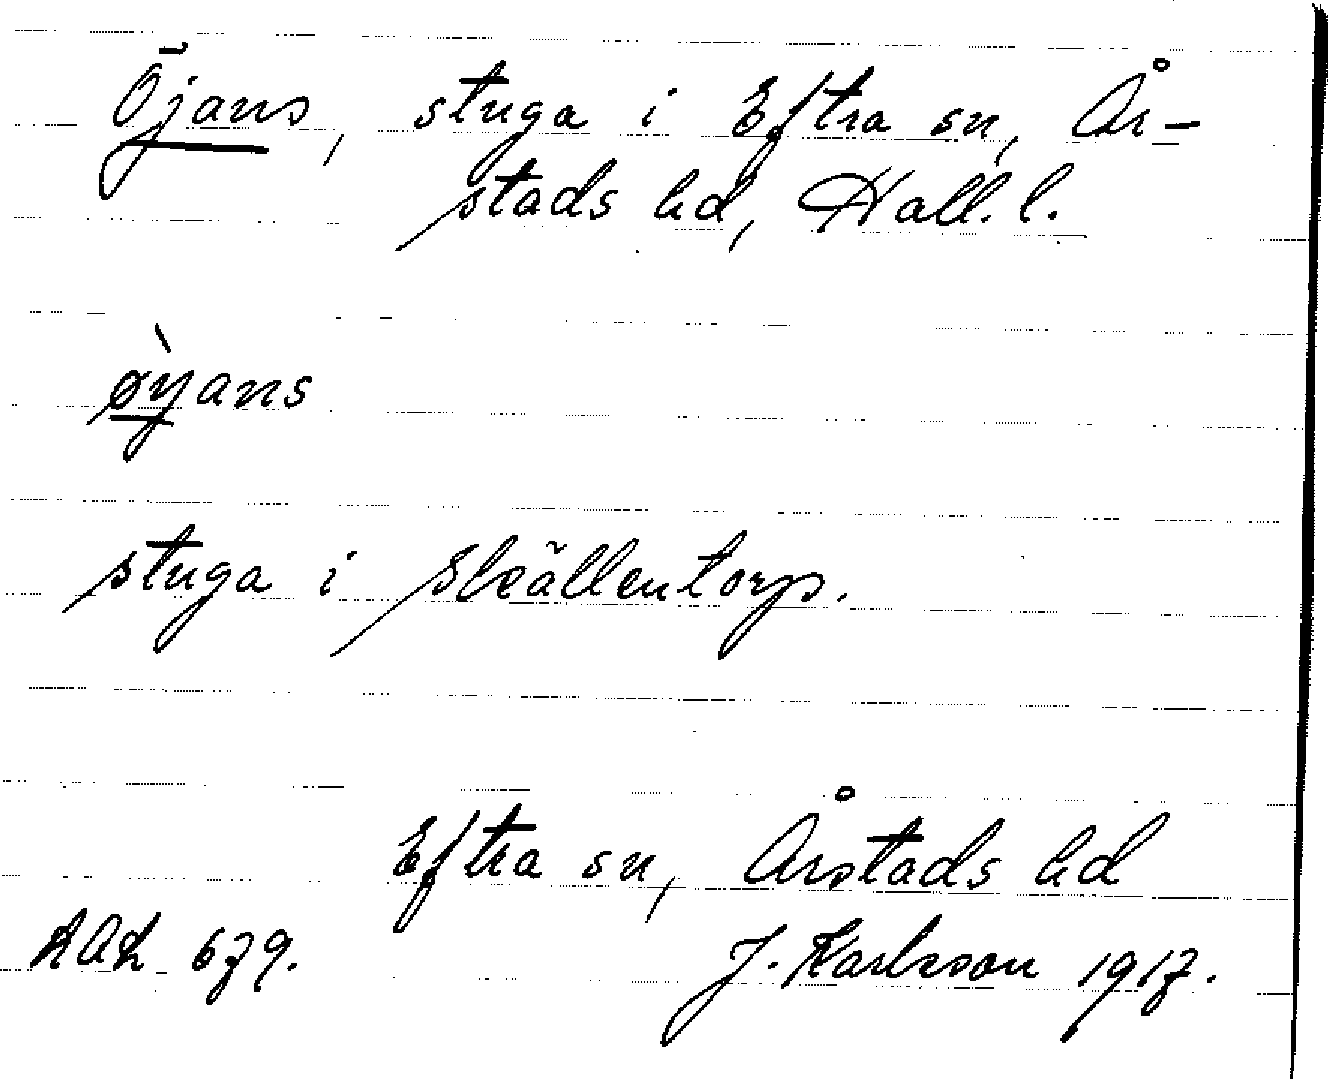 Öjans, stuga i Eftra sn, År-
stads hd, Hall. l.
øỳans
stuga i Skällentorp.
Eftra sn, Årstads hd
679.
J. Karlsson 1917.